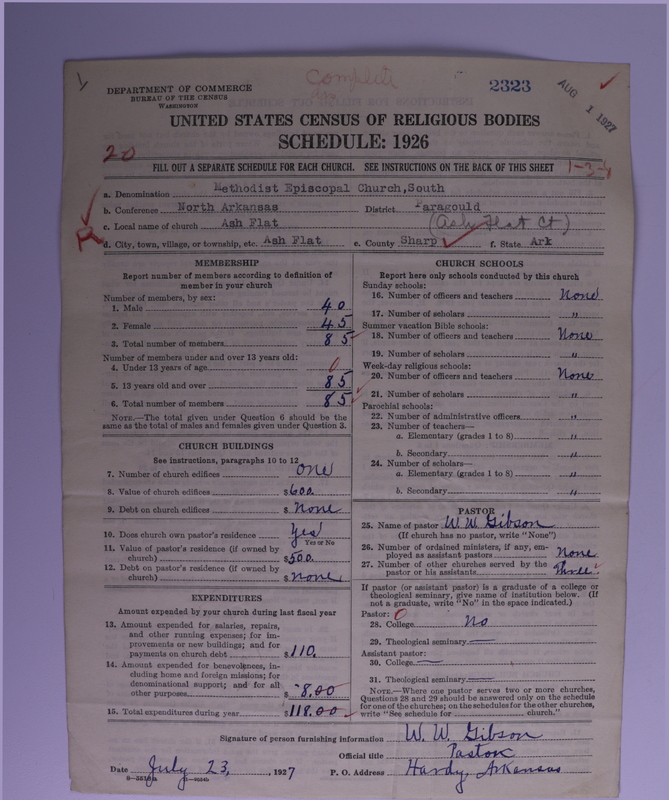 Complete
DEPARTMENT OF COMMERCE
BUREAU OF THE CENSUS
WASHINGTON
2323
AUG 1 1927
UNITED STATES CENSUS OF RELIGIOUS BODIES
SCHEDULE: 1926
20
FILL OUT A SEPARATE SCHEDULE FOR EACH CHURCH. SEE INSTRUCTIONS ON THE BACK OF THIS SHEET
1-3-4
a. Denomination Methodist Episcopal Church,South
b. Conference North Arkansas District Paragould
c. Local name of church Ash Flat (Ash Flat Ct)
R
d. City, town, village, or township, etc. Ash Flat e. County Sharp f. State Ark
MEMBERSHIP
Report number of members according to definition of
member in your church
Number of members, by sex:
1. Male 40
2. Female 45
3. Total number of members 85
Number of members under and over 13 years old:
4. Under 13 years of age 0
5. 13 years old and over 85
6. Total number of members 85
NOTE.—The total given under Question 6 should be the
same as the total of males and females given under Question 3.
CHURCH BUILDINGS
See instructions, paragraphs 10 to 12
7. Number of church edifices one
8. Value of church edifices $600.
9. Debt on church edifices $None
10. Does church own pastor's residence Yes
Yes or No
11. Value of pastor's residence (if owned by
church) $500.
12. Debt on pastor's residence (if owned by
church) $none
EXPENDITURES
Amount expended by your church during last fiscal year
13. Amount expended for salaries, repairs,
and other running expenses; for im-
provements or new buildings; and for
payments on church debt $110.
14. Amount expended for benevolences, in-
cluding home and foreign missions; for
denominational support; and for all
other purposes $8.00
15. Total expenditures during year $118.00
CHURCH SCHOOLS
Report here only schools conducted by this church
Sunday schools:
16. Number of officers and teachers None
17. Number of scholars "
Summer vacation Bible schools:
18. Number of officers and teachers None
19. Number of scholars "
Week-day religious schools:
20. Number of officers and teachers None
21. Number of scholars "
Parochial schools:
22. Number of administrative officers "
23. Number of teachers—
a. Elementary (grades 1 to 8) "
b. Secondary "
24. Number of scholars—
a. Elementary (grades 1 to 8) "
b. Secondary "
PASTOR
25. Name of pastor W. W. Gibson
(If church has no pastor, write "None")
26. Number of ordained ministers, if any, em-
ployed as assistant pastors None
27. Number of other churches served by the
pastor or his assistants Three
If pastor (or assistant pastor) is a graduate of a college or
theological seminary, give name of institution below. (If
not a graduate, write "No" in the space indicated.)
Pastor: 0
28. College No
29. Theological seminary —
Assistant pastor:
30. College —
31. Theological seminary —
NOTE.—Where one pastor serves two or more churches,
Questions 28 and 29 should be answered only on the schedule
for one of the churches; on the schedules for the other churches,
write "See schedule for church."
Signature of person furnishing information W. W. Gibson
Official title Pastor
Date July 23, , 1927 P. O. Address Hardy, Arkansas